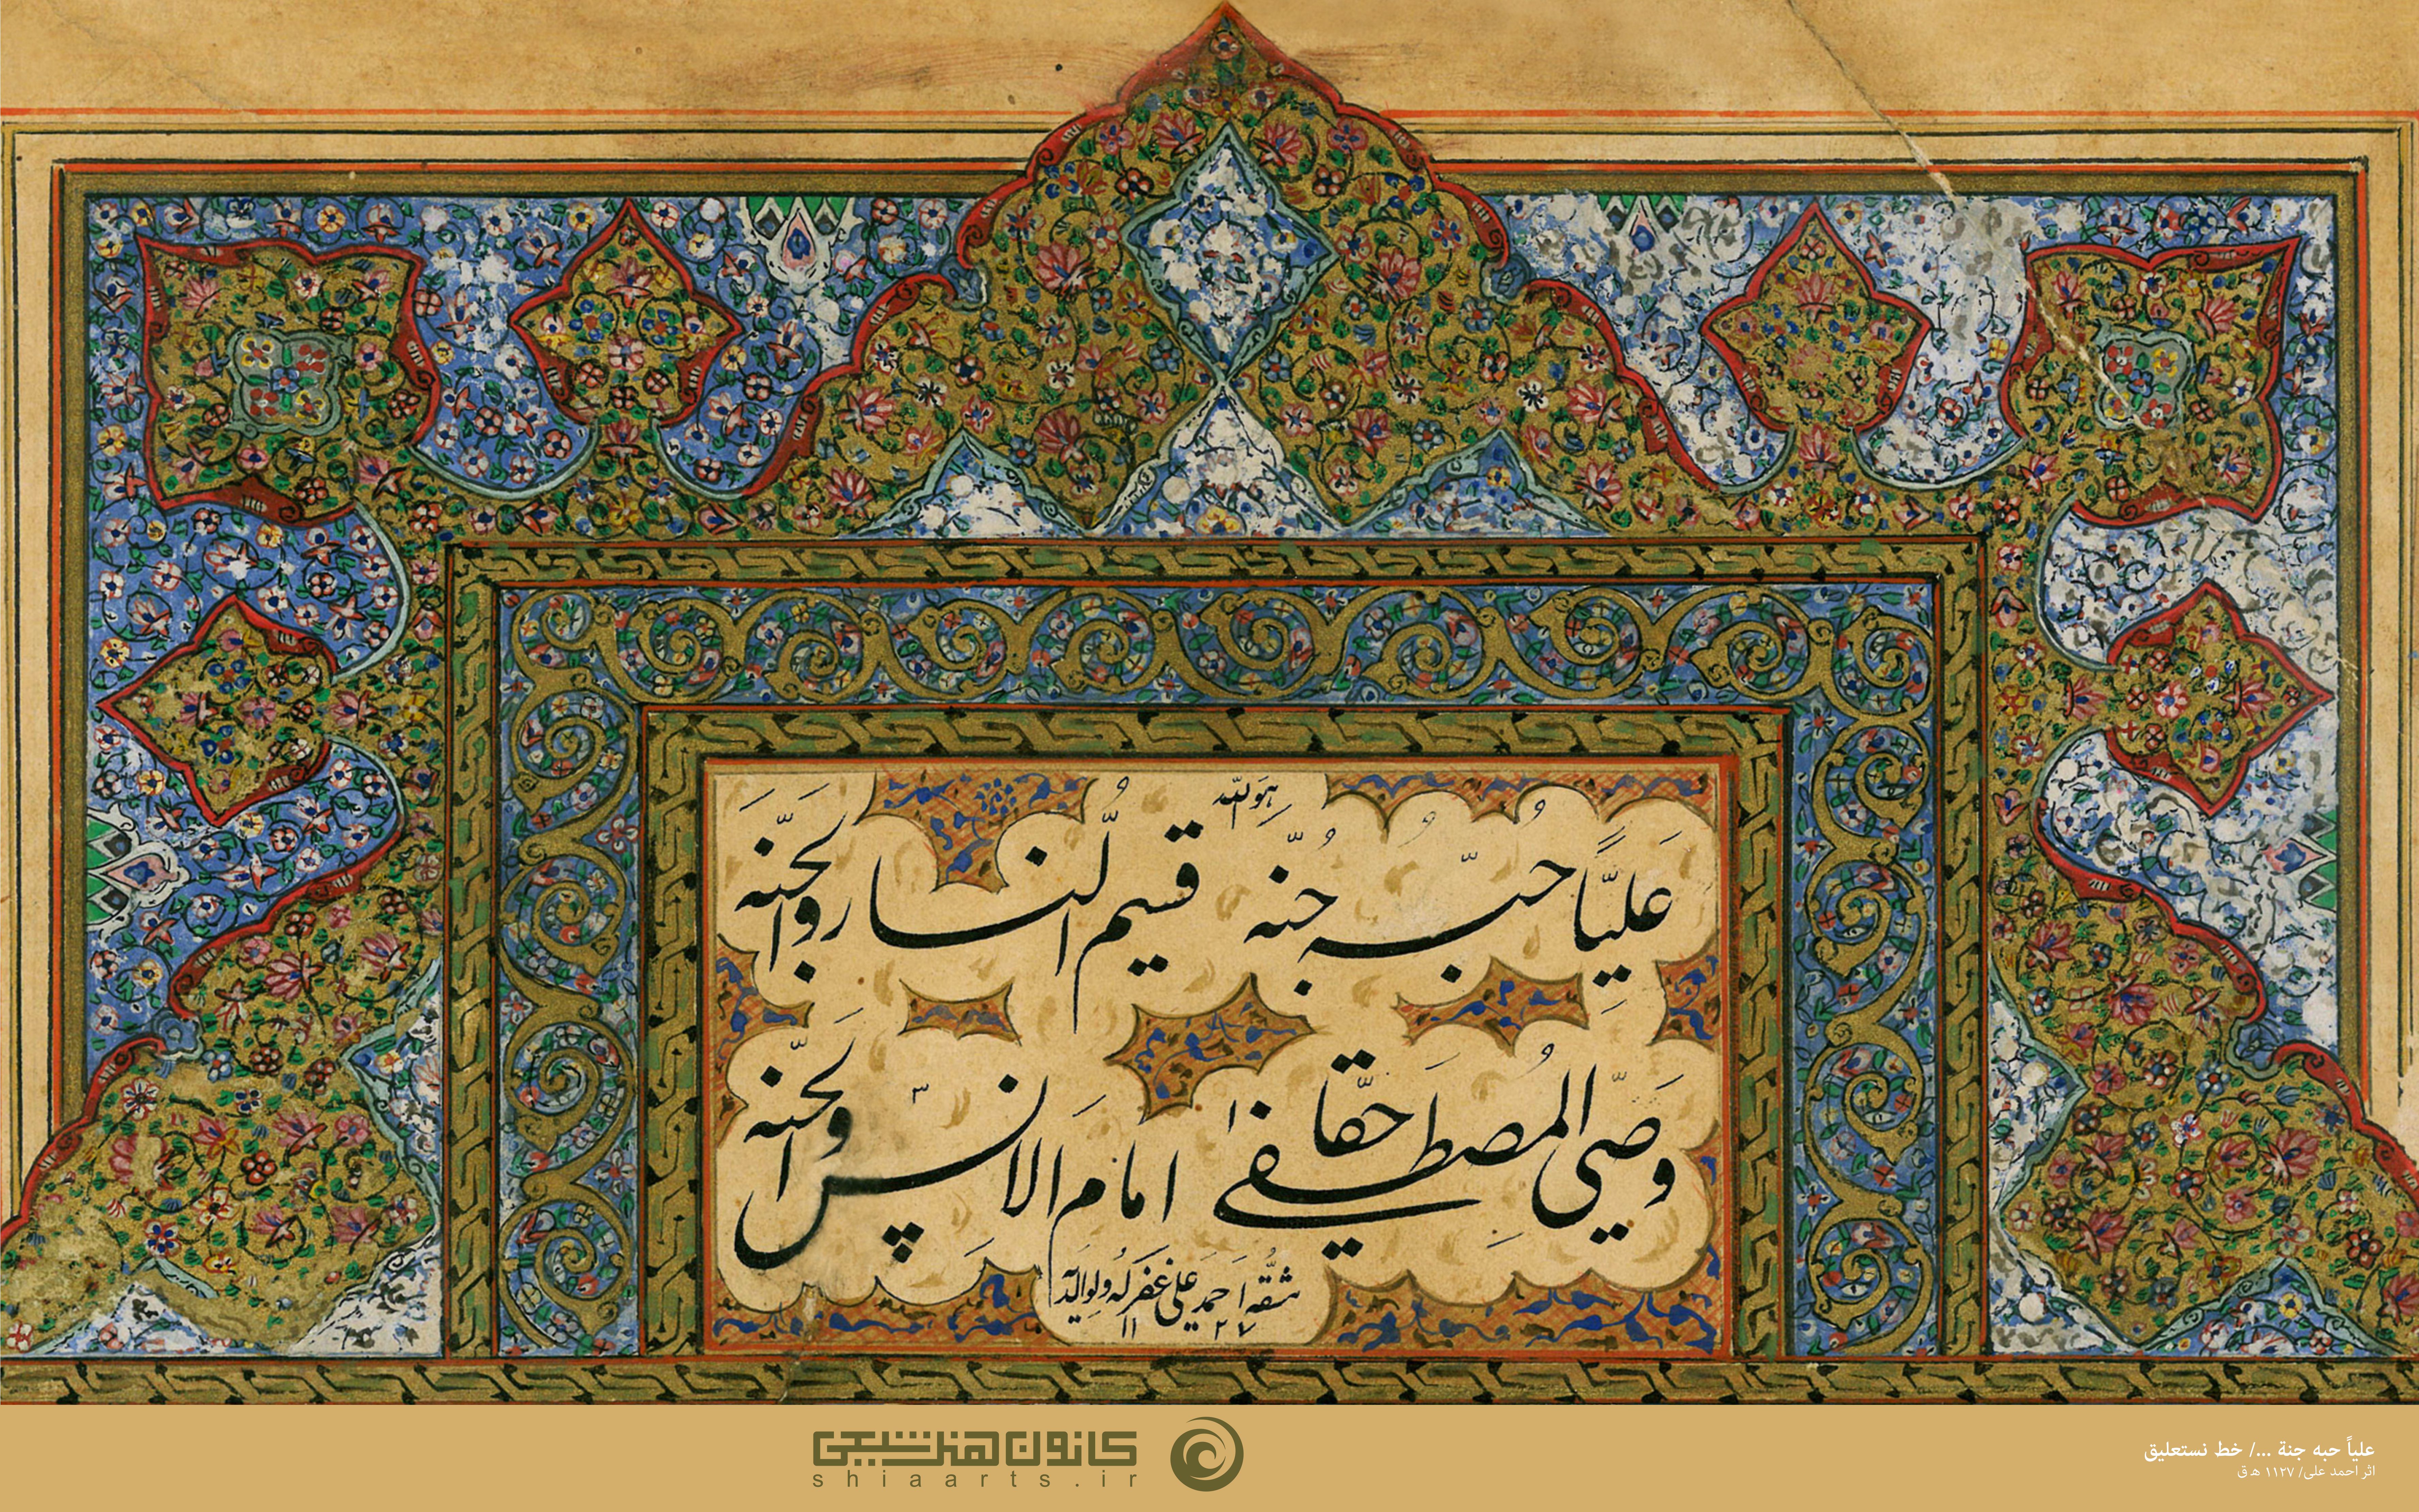 هو الله
علیاً حبّه جنّه قسیم النار والجنّه
وصیّ المصطفی حقّاً امام الانس والجنّه
مشقه احمد علی غفر له ولوالدیه
۱۱۲۷
کانون هنر شیعی
shiaarts.ir
علیاً حبه جنة .../ خط نستعلیق
اثر احمد علی/ ۱۱۲۷ ه ق